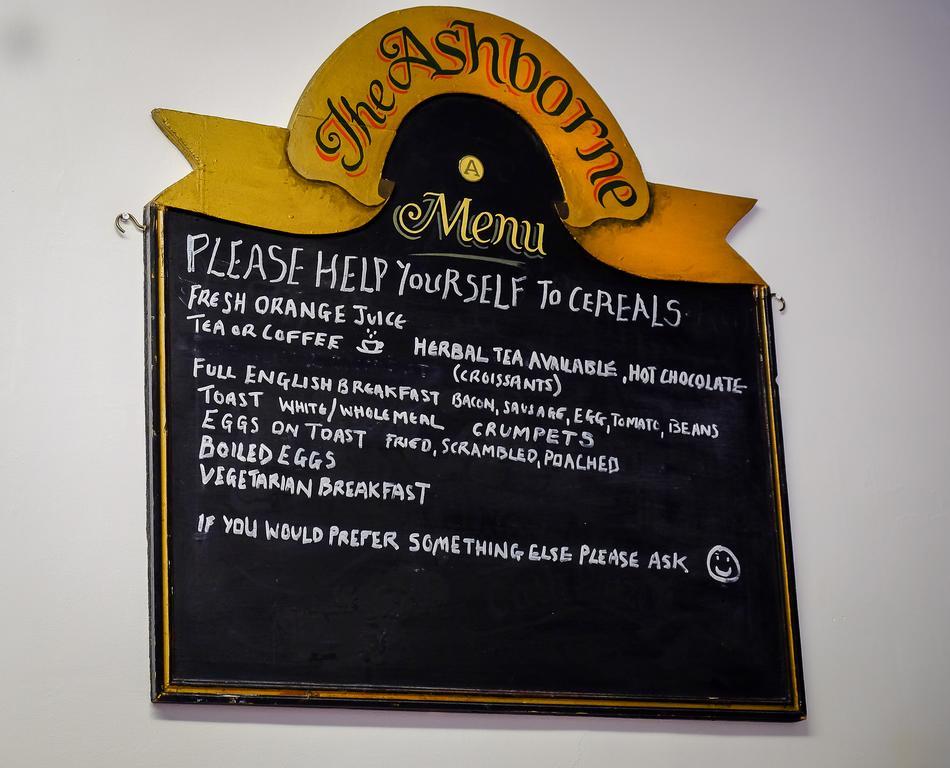 The Ashborne
A
Menu
PLEASE HELP YOURSELF TO CEREALS
FRESH ORANGE JUICE
TEA OR COFFEE HERBAL TEA AVAILABLE, HOT CHOCOLATE
(CROISSANTS)
FULL ENGLISH BREAKFAST BACON, SAUSAGE, EGG, TOMATO, BEANS
TOAST WHITE/WHOLEMEAL CRUMPETS
EGGS ON TOAST FRIED, SCRAMBLED, POACHED
BOILED EGGS
VEGETARIAN BREAKFAST
IF YOU WOULD PREFER SOMETHING ELSE PLEASE ASK